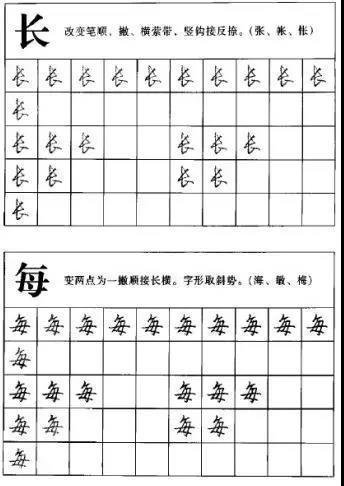 长 改变笔顺、撇、横萦带、竖钩接反捺。(张、帐、怅)
长 长 长 长 长 长 长 长 长 长
长
长 长 长 长 长 长
长 长 长 长
长
每 变两点为一撇顺接长横。字形取斜势。(海、敏、梅)
每 每 每 每 每 每 每 每 每 每
每
每 每 每 每 每 每
每 每 每 每
每